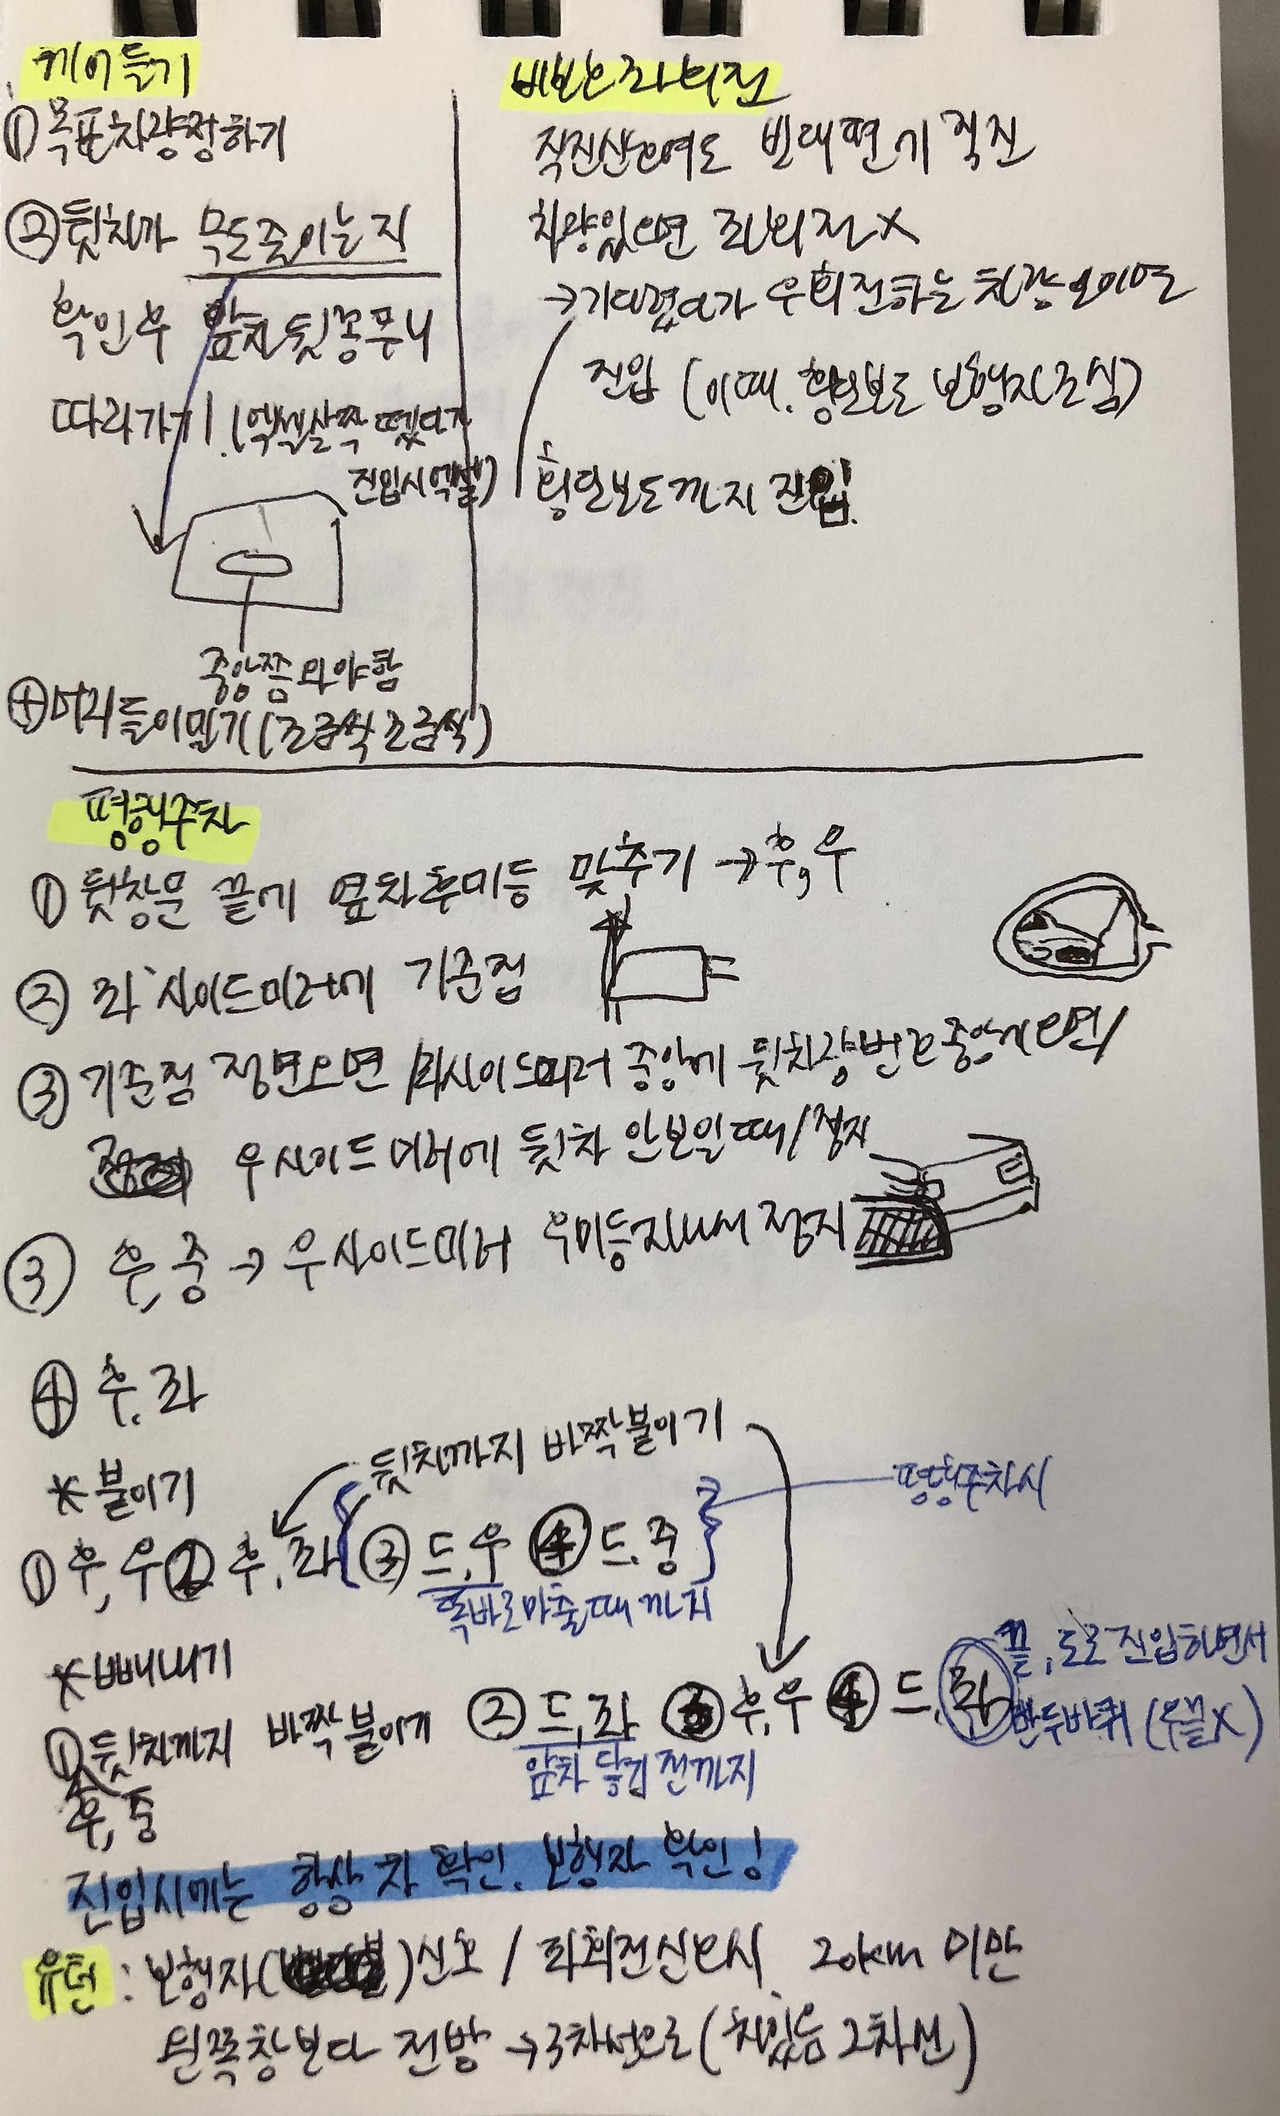 끼어들기
① 목표차량정하기
② 뒷차가 속도줄이는지
확인후 앞차 뒷꽁무니
따라가기 (엑셀살짝 뗐다가
진입시 엑셀)
중앙쯤 와야함
⊕ 머리들이밀기 (조금씩 조금씩)
비보호좌회전
직진신호여도 반대편에 직진
차량있으면 좌회전X
→기다렸다가 우회전하는 차량 보이면
진입 (이때, 횡단보도 보행자 조심)
횡단보도까지 진입.
평행주차
① 뒷창문 끝에 옆차 후미등 맞추기 → 후, 우
② 좌 사이드미러에 기준점
③ 기준점 정면오면 / 좌사이드미러 중앙에 뒷차량번호 중앙에오면/
우사이드미러에 뒷차 안보일때/정지
③ 후, 중 → 우사이드미러 후미등지나서 정지
④ 후, 좌
* 붙이기
뒷차까지 바짝붙이기
평행주차시
① 후, 우 ② 후, 좌 ③ 드, 우 ④ 드, 중
똑바로맞출때까지
* 빼내기
① 뒷차까지 바짝붙이기 ② 드, 좌 ③ 후, 우 ④ 드, 좌
끝, 도로진입하면서
반두바퀴 (우끝X)
앞차 닿기 전까지
후, 중
진입시에는 항상 차 확인, 보행자 확인!
유턴 : 보행자( )신호 / 좌회전신호시 20km 미만
왼쪽창보다 전방 → 3차선으로 (차있음 2차선)